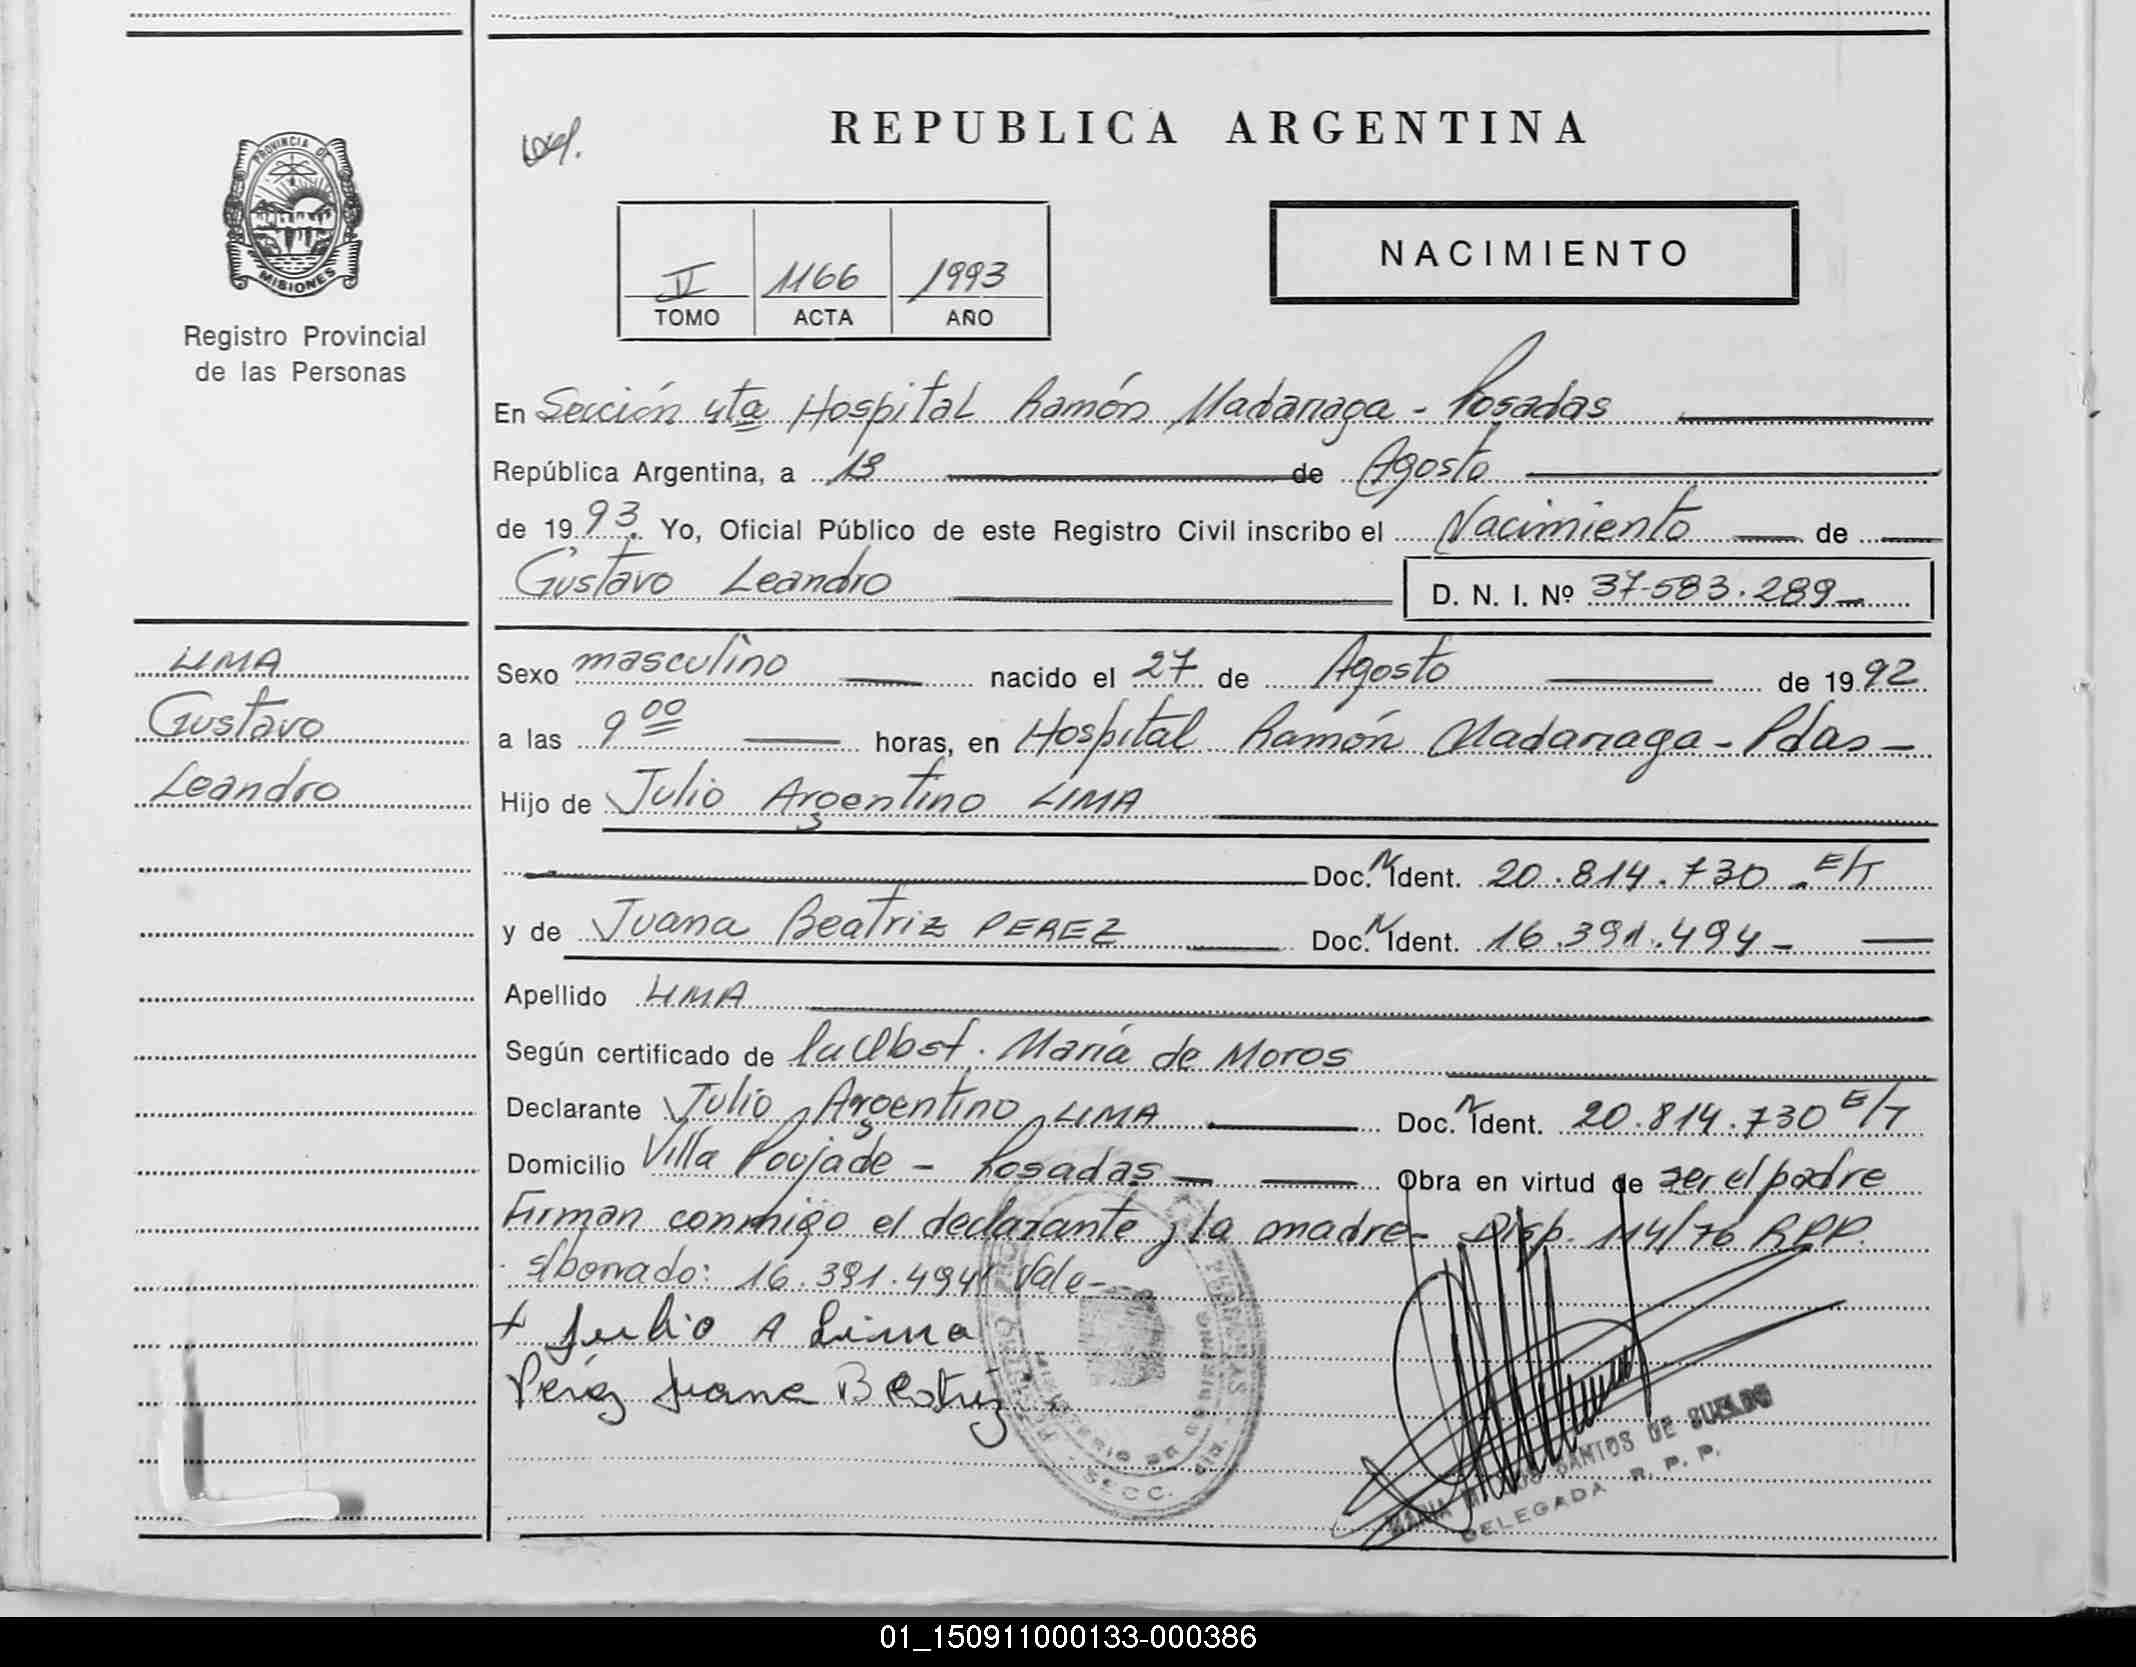 REPUBLICA ARGENTINA
PROVINCIA DE
MISIONES
Registro Provincial
de las Personas
NACIMIENTO
II 1166 1993
TOMO ACTA AÑO
En Sección 4ta Hospital Ramón Madariaga - Posadas
República Argentina, a 13 de Agosto
de 1993. Yo, Oficial Público de este Registro Civil inscribo el Nacimiento de
Gustavo Leandro D. N. I. Nº 37.583.289
LIMA
Gustavo
Leandro
Sexo masculino nacido el 27 de Agosto de 1992
a las 9 00 horas, en Hospital Ramón Madariaga - Pdas -
Hijo de Julio Argentino LIMA
Doc. N Ident. 20.814.730 E/T
y de Juana Beatriz PEREZ Doc. N Ident. 16.391.494 -
Apellido LIMA
Según certificado de la Obst. María de Moros
Declarante Julio Argentino LIMA Doc. N Ident. 20.814.730 E/T
Domicilio Villa Poujade - Posadas Obra en virtud de ser el padre
Firman conmigo el declarante y la madre - Disp. 114/76 RPP.
S/borrado: 16.391.494 Vale -
+ Julio A Lima
Peréz Juana Beatriz
SECC.
SANTOS DE
DELEGADA R. P. P.
01_150911000133-000386